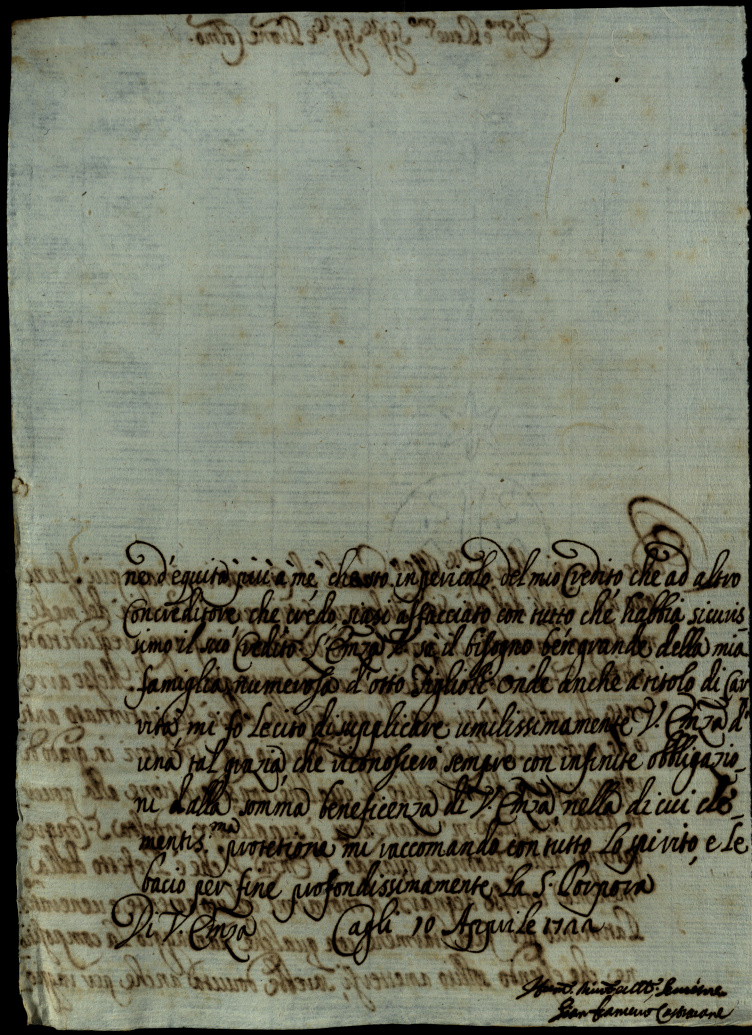 ne d'equità più à me che stò in pericolo del mio Credito che ad altro
Concreditore che credo siasi affacciato con tutto che habbia sicuris
simo il suo Credito. L'Emza V. sà il bisogno ben grande della mia
famiglia numerosa d'otto figlioli onde anche a titolo di Car
rità mi fò lecito di supplicare umilissimamente V. Emza d'
una tal grazia che riconoscerò sempre con infinite obbligazio
ni dalla somma beneficenza di V. Emza, nella di cui cle
mentis.ma protetione mi raccomando con tutto lo spirito, e le
bacio per fine profondissimamente la S. Porpora
Di V. Emza Cagli 10 Aprile